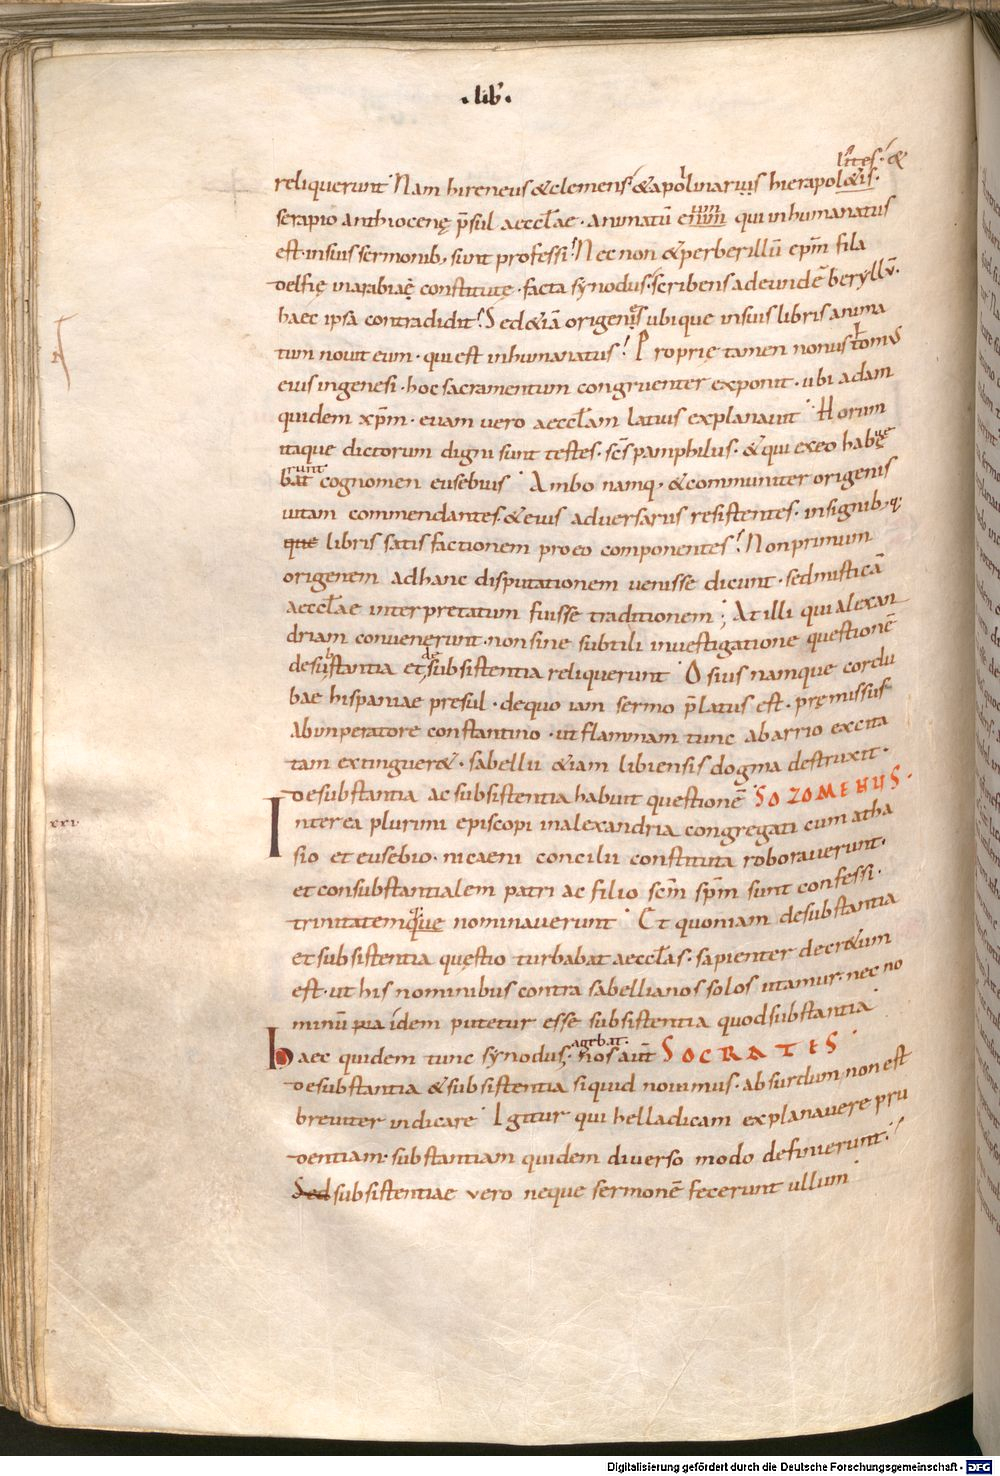 .lib'.
lites. &
reliquerunt Nam hireneus & clemens & apolinarius hierapol&is.
serapio anthiocenę p̄sul aeccl̄ae. animatū enim qui inhumanatus
est. in suis sermonib; sunt professi. Nec non & per berillū ep̄m fila
delfię in arabiae constitutę. facta synodus. scribens ad eundē beryllū.
haec ipsa contradidit. Sed &iā origenis ubique in suis libris anima
tum nouit eum. qui est inhumanatus. Proprię tamen nonus tomus
eius in genesi. hoc sacramentum congruenter exponit. ubi adam
quidem xp̄m. euam uero aeccl̄am latius explanauit. Horum
itaque dictorum digni sunt testes. sc̄s pamphilus. & qui ex eo habue
runt
bat cognomen eusebius. Ambo namq; & communiter origenis
uitam commendantes. & eius aduersariis resistentes. insignib; q;
que libris satisfactionem pro eo componentes. Non primum
origenem ad hanc disputationem uenisse dicunt. sed misticā
aeccl̄ae interpretatum fuisse traditionem; At illi qui alexan
driam conuenerunt. non sine subtili inuestigatione questionē
de sustantia et de subsistentia reliquerunt. Osius namque cordu
bae hispaniae presul. de quo iam sermo p̄latus est. pręmissus
ab imperatore constantino. ut flammam tunc ab arrio excita
tam extinguer&. sabellii &iam libiensis dogma destruxit.
de substantia ac subsistentia habuit questionē SOZOMENUS.
xxi
Interea plurimi episcopi in alexandria congregati cum atha
sio et eusebio. nicaeni concilii constituta roborauerunt.
et consubstantialem patri ac filio sc̄m sp̄m sunt confessi.
trinitatemque nominauerunt. Et quoniam de substantia
et subsistentia quęstio turbabat aeccl̄as. sapienter decr&um
est. ut his nominibus contra sabellianos solos utamur. nec no
minū idem putetur esse subsistentia quod substantia
haec quidem tunc synodus. nos aut̄ SOCRATES
de substantia & subsistentia siquid nouimus. absurdum non est
breuiter indicare. Igitur qui helladicam explanauere pru
dentiam. substantiam quidem diuerso modo definierunt.
Sed subsistentiae vero neque sermonē fecerunt ullum
Digitalisierung gefördert durch die Deutsche Forschungsgemeinschaft - DFG